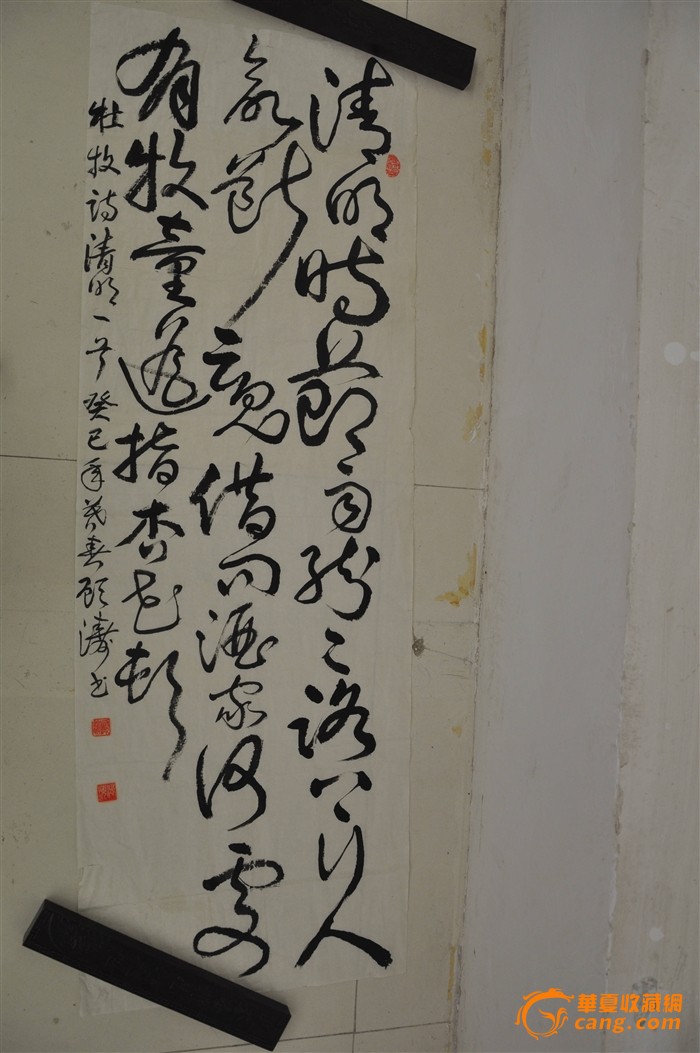 清明時節雨紛々路上行人
欲斷魂借問酒家何處
有牧童遥指杏花村
杜牧詩清明一首癸巳年暮春顾濤书
華夏收藏網
cang.com